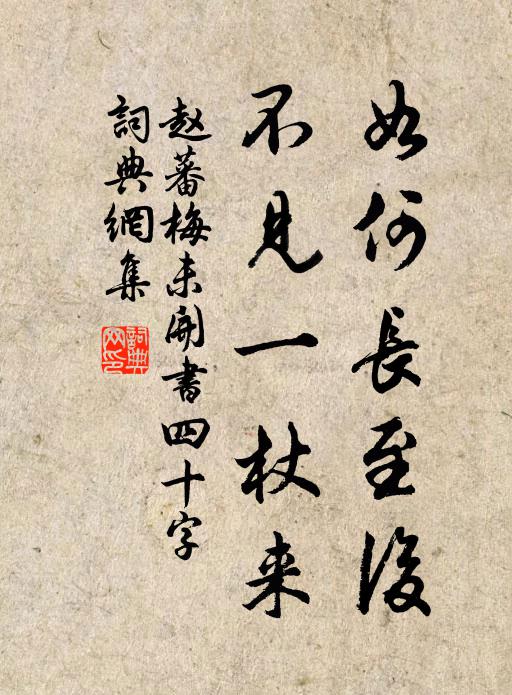 如何長至後
不見一杖来
赵蕃梅未開書四十字
詞典網集
詞典网印